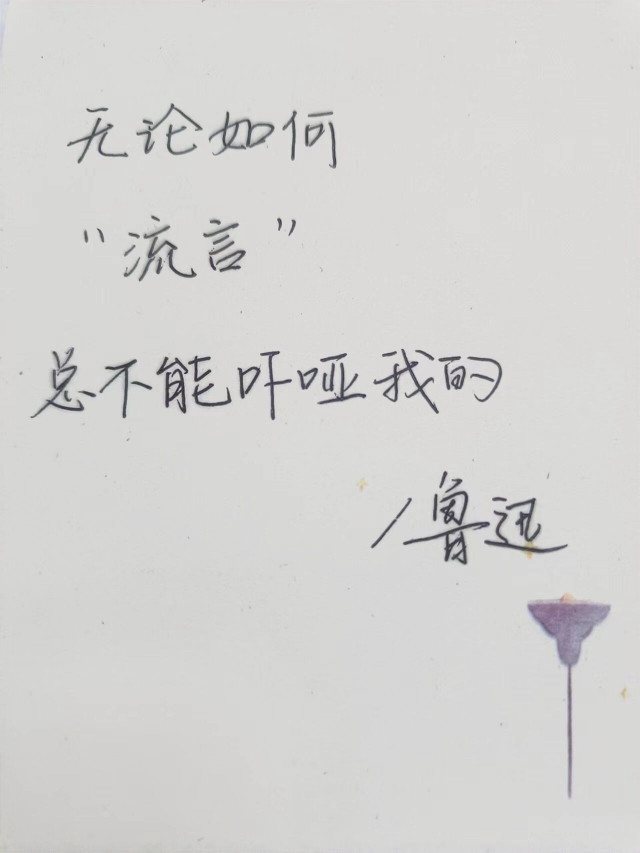 无论如何
“流言”
总不能吓哑我的
/鲁迅